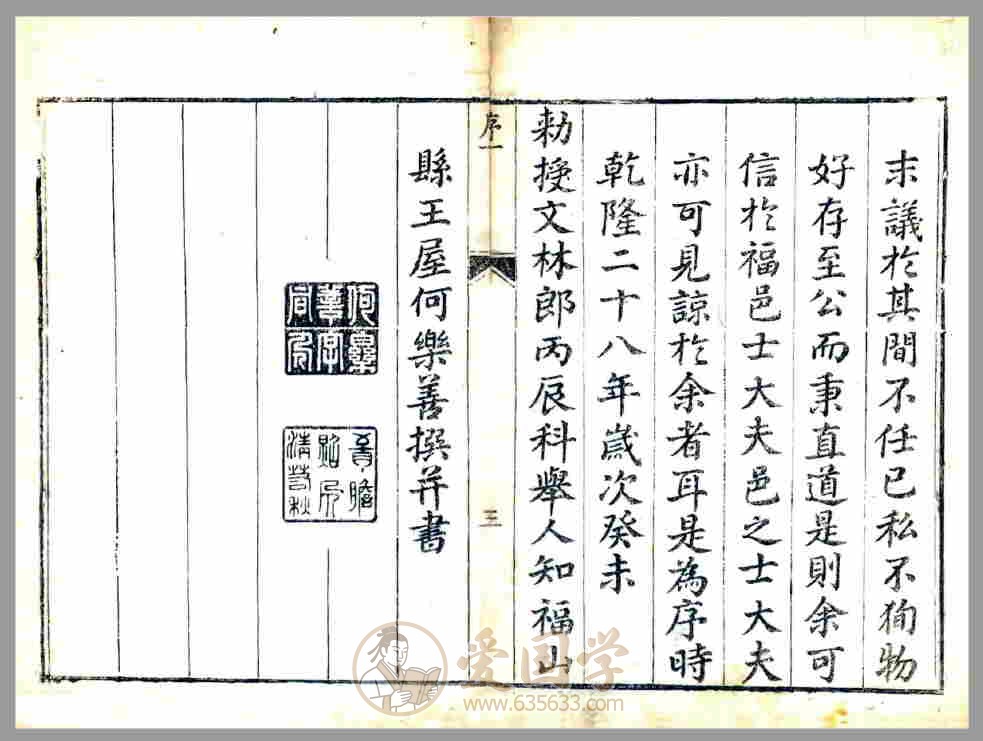 末議於其間不任已私不徇物
好存至公而秉直道是則余可
信於福邑士大夫邑之士大夫
亦可見諒於余者耳是為序時
乾隆二十八年歲次癸未
勅授文林郎丙辰科舉人知福山
縣王屋何樂善撰并書
序一
三
爱国学
www.635633.com